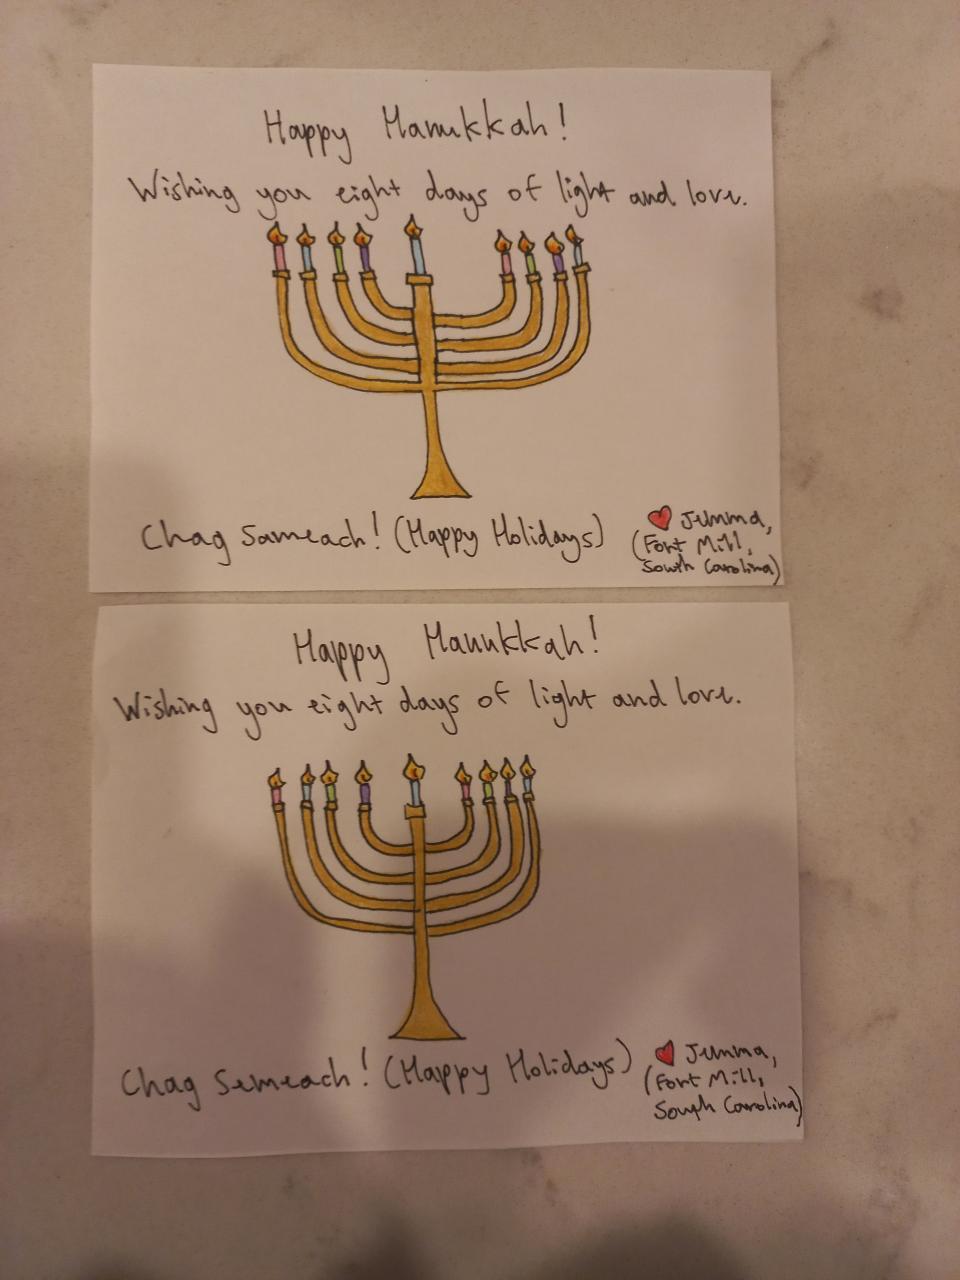 Happy Hanukkah!
Wishing you eight days of light and love.
Chag Sameach! (Happy Holidays)
Jemma,
(Fort Mill,
South Carolina)
Happy Hanukkah!
Wishing you eight days of light and love.
Chag Semeach! (Happy Holidays)
Jemma,
(Fort Mill,
South Carolina)